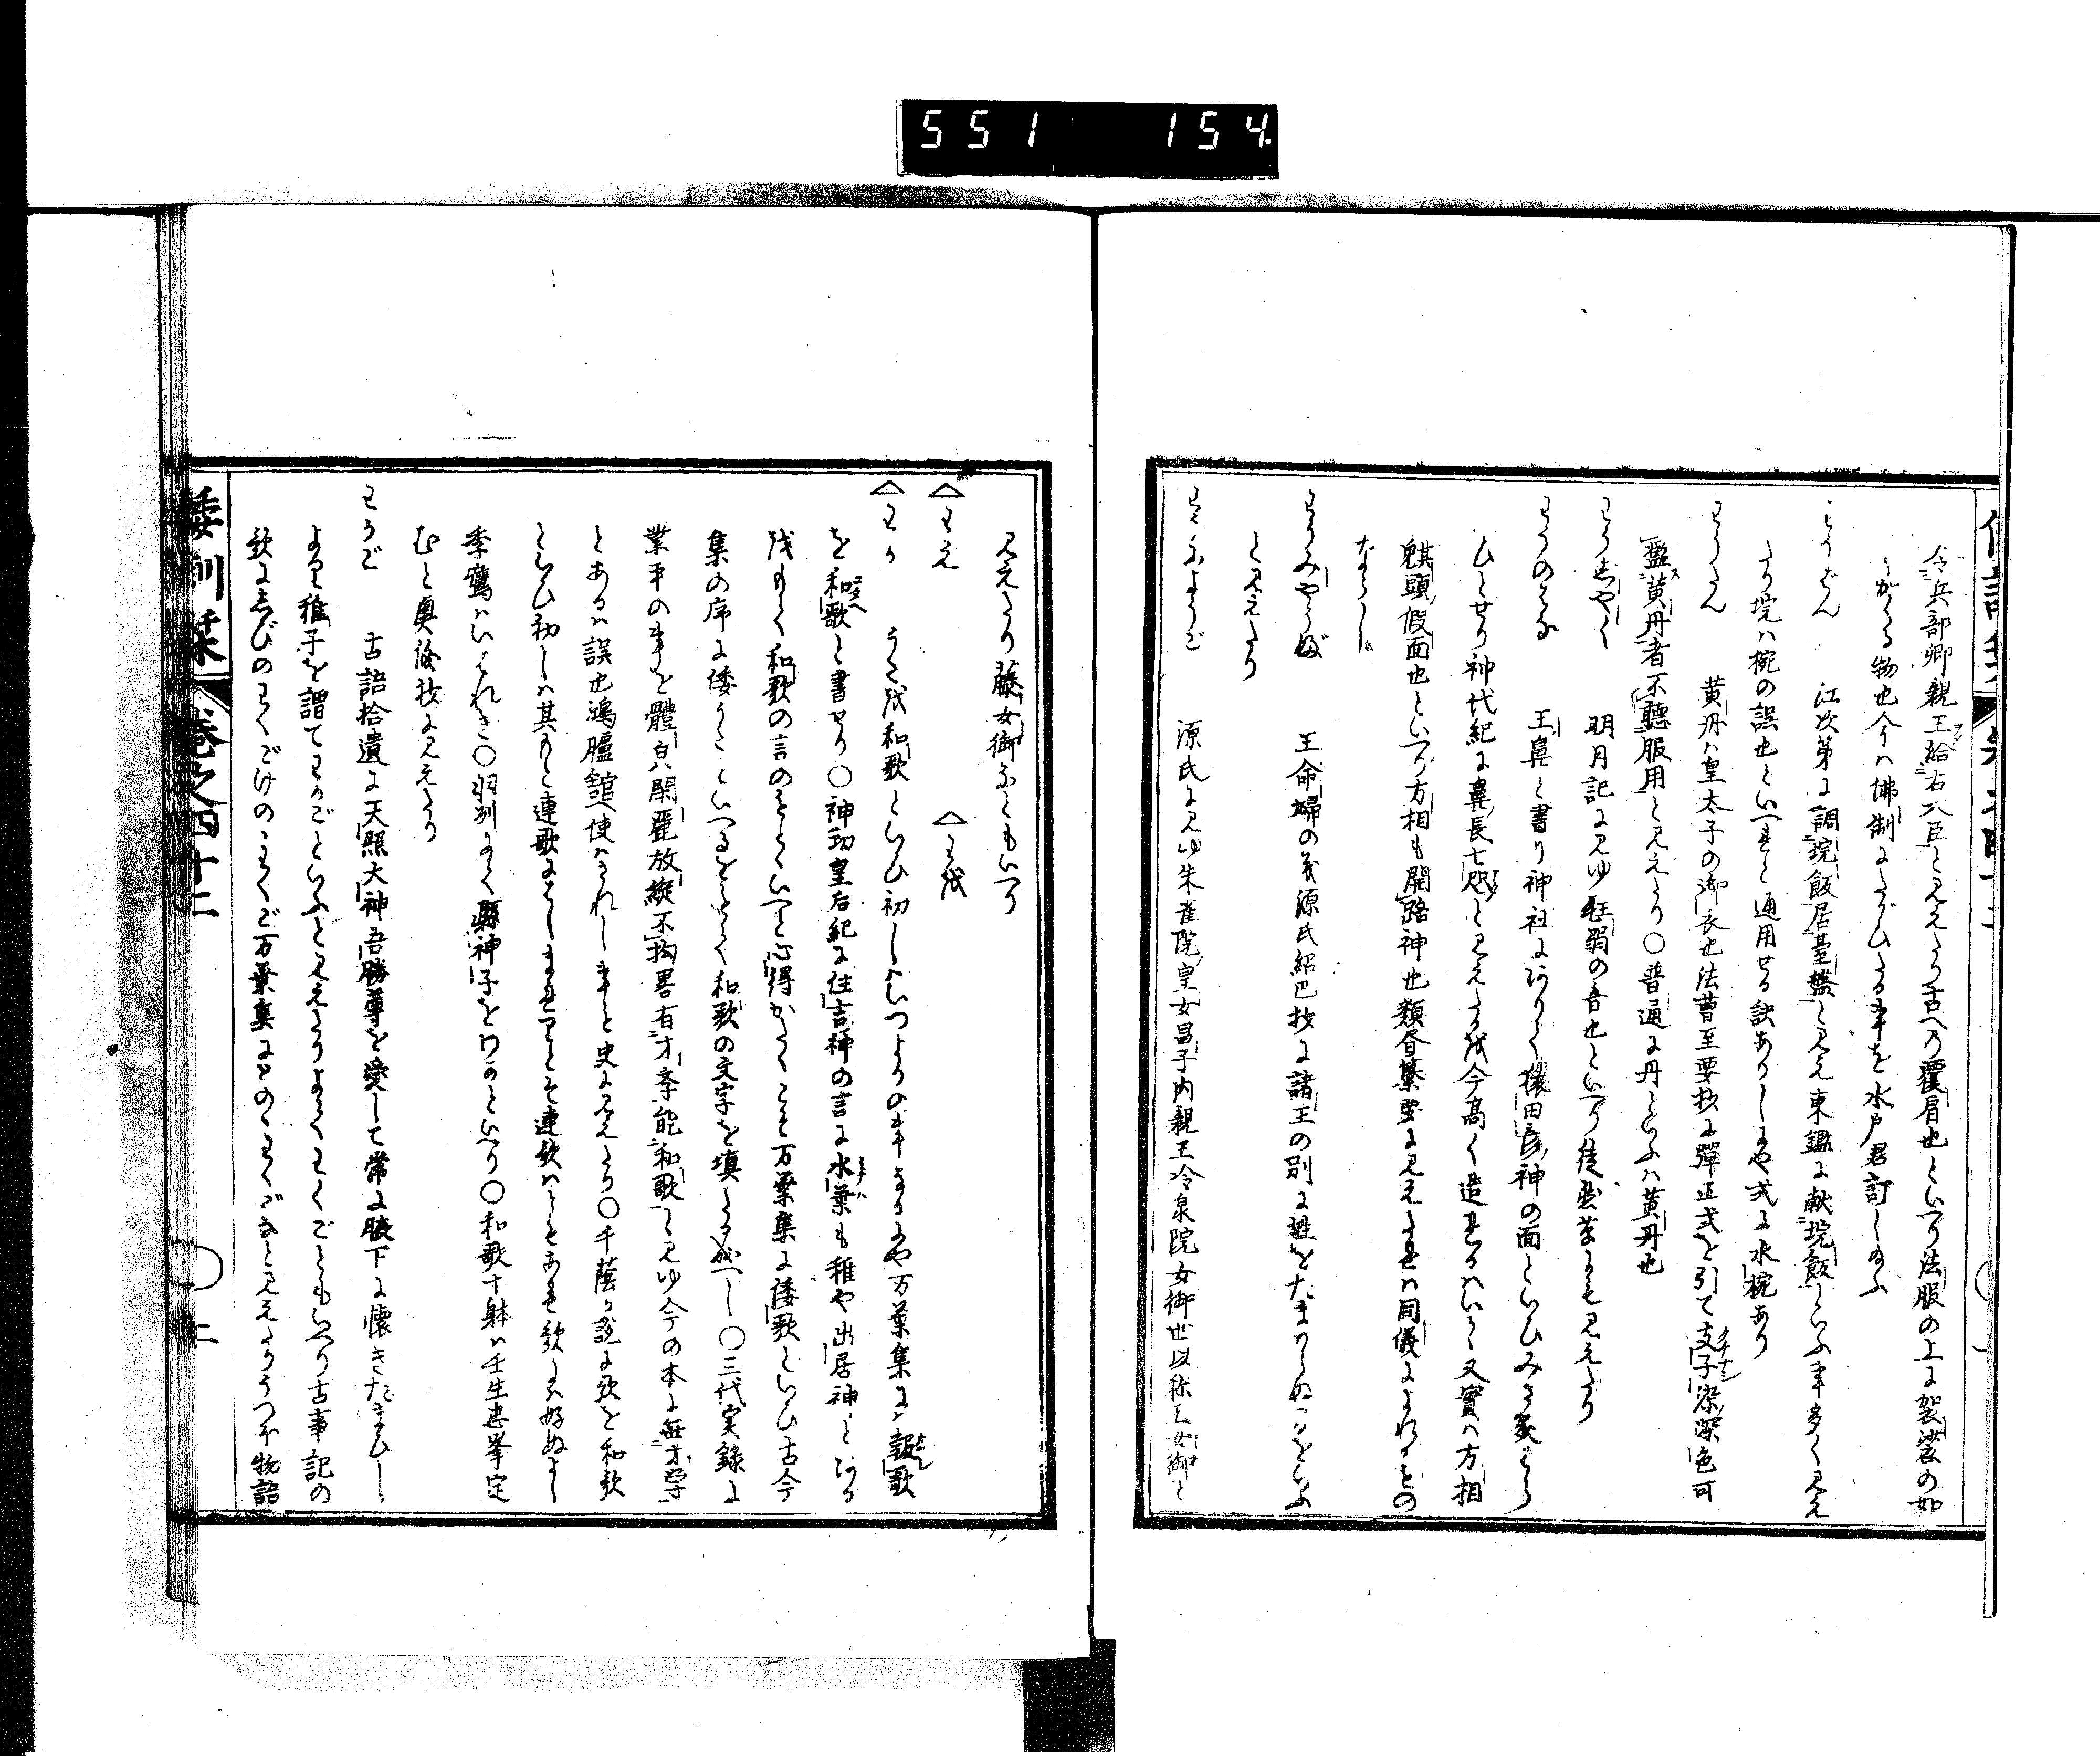 551 154.
令兵部卿親王給右大臣と見えたり古への覆肩也といへり法服の上に袈裟の如
くかくる物也今ハ佛制にたがひたる事を水戸君訂し給ふ
わうばん 江次第に調埦飯居臺盤と見え東鑑に献埦飯といふ事多く見え
たり埦ハ椀の誤也といへど通用せる訣ありしにや式に水椀あり
わうたん 黄丹ハ皇太子の御衣也法曹至要抄に彈正式を引て支子染深色可
濫黄丹者不聽服用と見えたり○普通に丹といふハ黄丹也
わうじやく 明月記に見ゆ尫弱の音也といへり徒然草にも見えたり
わうのはな 王鼻と書り神社にありて猿田彦神の面といひ
ひとせり神代紀に鼻長七咫と見えたるを今高く造れるハ 又實ハ方相
魌頭假面也といへり方相も開路神也類合纂要に見えたれハ同儀によれるもの
ならし
わうみやうぶ 王命婦の義源氏紹巴抄に諸王の別に姓をたまハらぬをいふ
と見えたり
わうにようご 源氏に見ゆ朱雀院皇女昌子内親王冷泉院女御也以称王女御と
見えたり藤女御なともいへり
△わえ △わを
△わか うたを和歌といひ初しハいつよりの事なるにや万葉集に報歌
を和歌と書せり○神功皇后紀に住吉神の言に水葉も稚や出居神とある
をもて和歌の言のもとゝいへど心得かたくこそ万葉集に倭歌といひ古今
集の序に倭うたといへるをもとゝて和歌の文字を填たる成へし○三代実録に
業平の事を體皃閑麗放縦不拘畧有才学能和歌と見ゆ今の本に無才学
とあるハ誤也鴻臚舘へ使ハされし事と史に見えたり○千蔭か説に歌を和歌
といひ初しハ其もと連歌に
季鷹ハいはれき○羽州にて縣神子をわかといへり○和歌十躰ハ壬生忠岑定
むと奥儀抄に見えたり
わかご 古語拾遺に天照大神吾勝尊を愛して常に腋下に懐きたまひし
より稚子を謂てわかごといふと見えたりよてわくごともいへり古事記の
歌にしびのわくごけのわくご万葉集にとのゝわくごなと見えたりうつほ物語
倭訓栞 巻之四十二 ○ 二